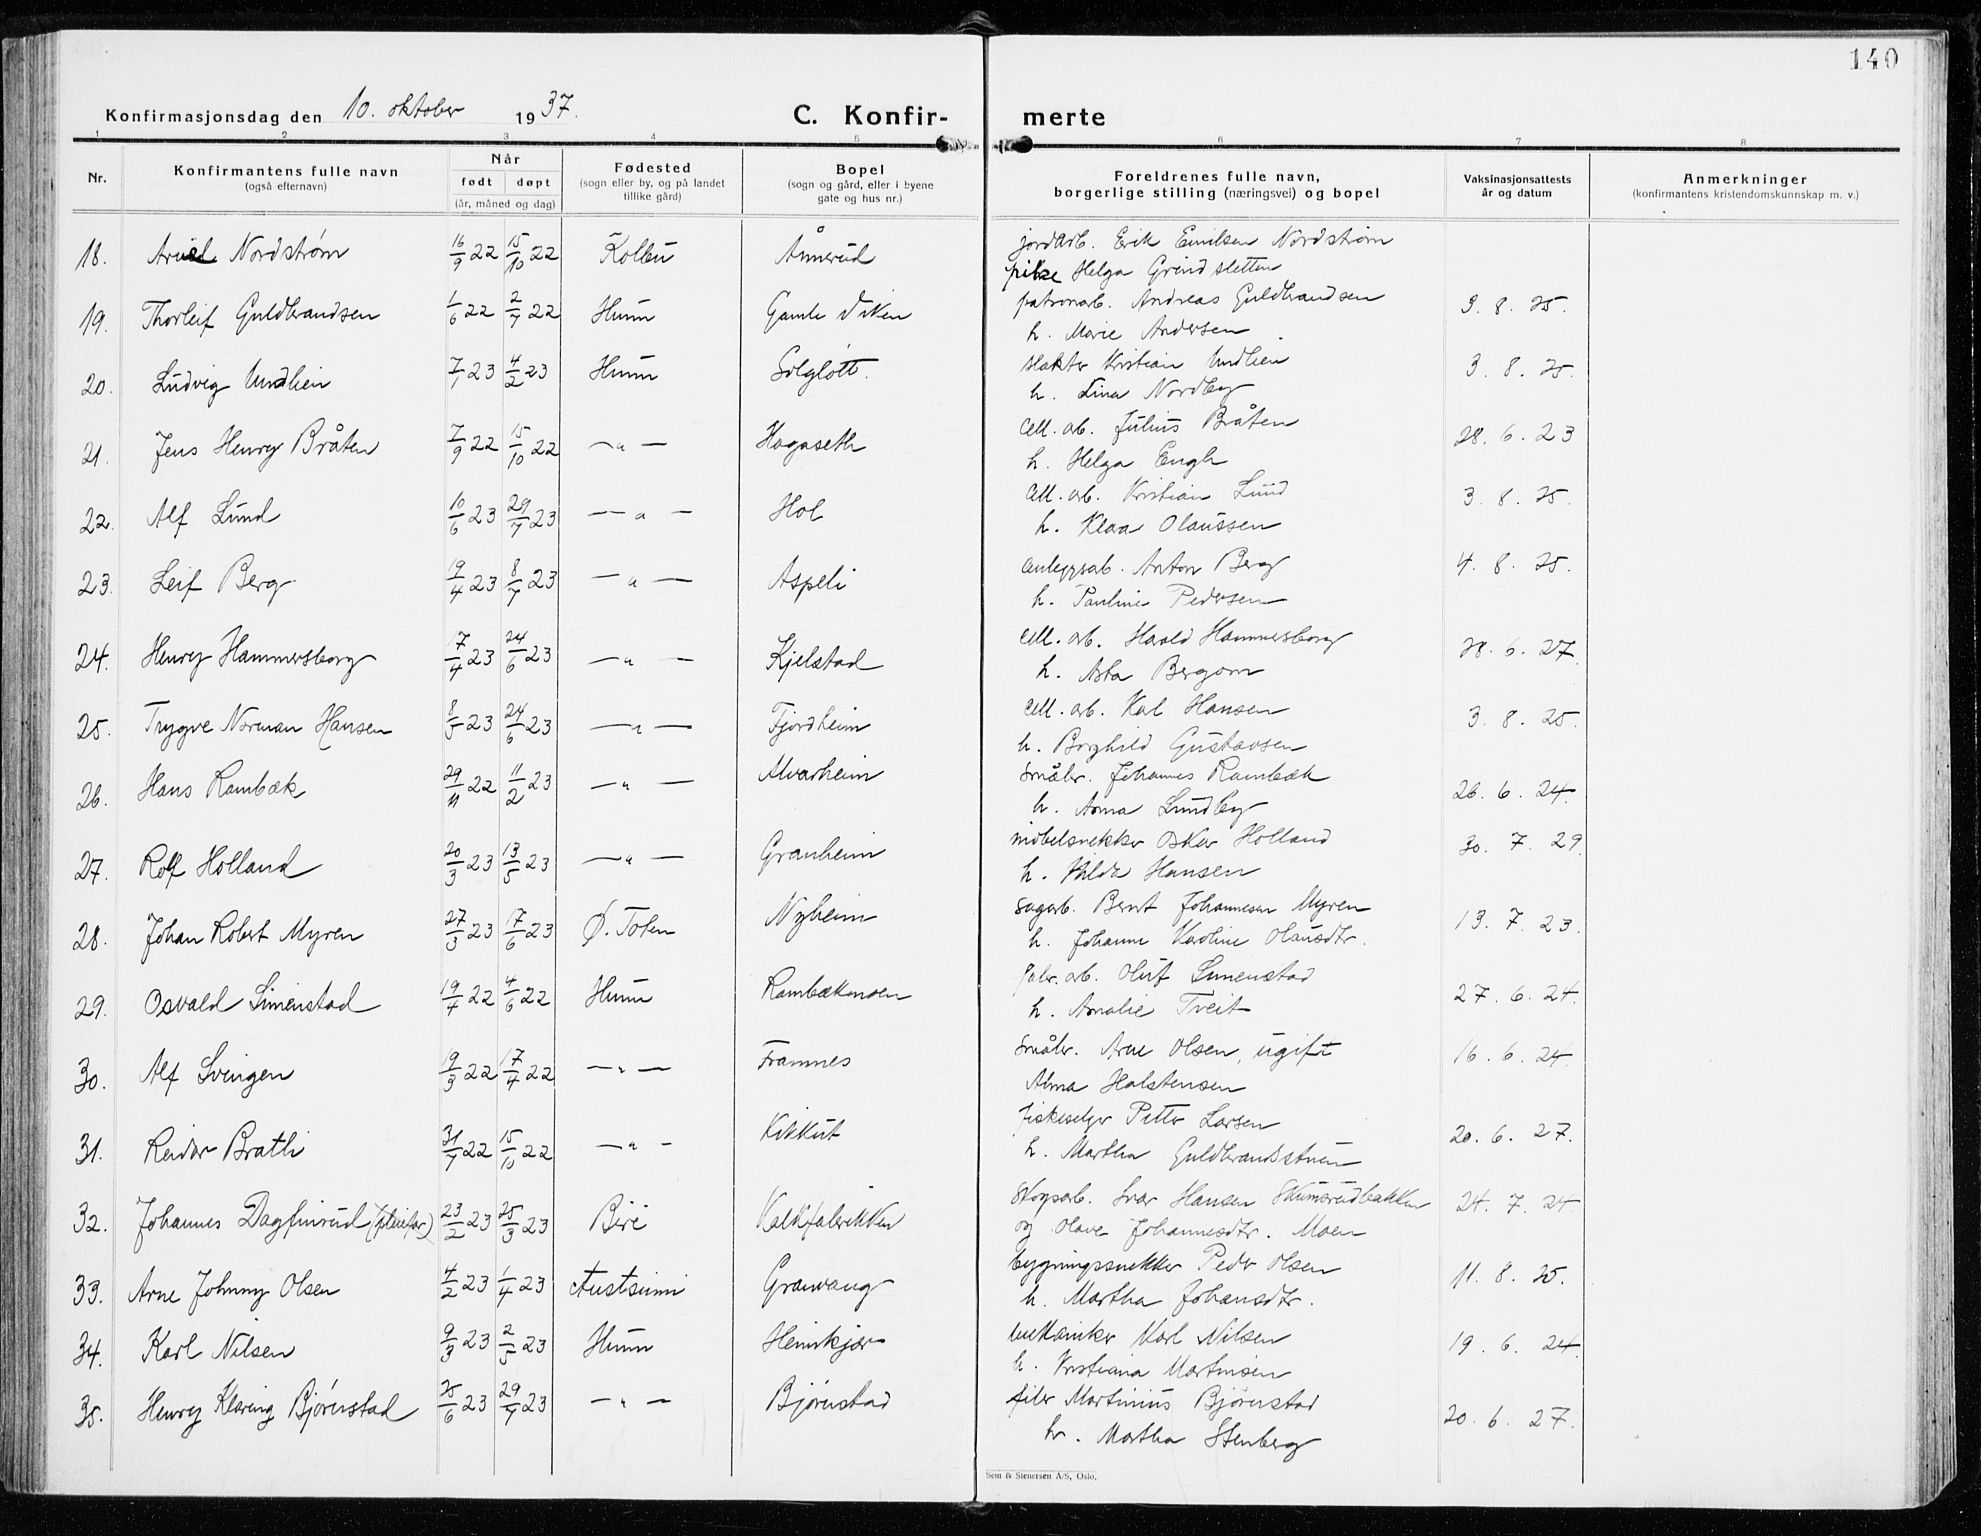 140
Konfirmasjonsdag den 10. oktober 1937.
C. Konfir-
merte
1 2 3 4 5 6 7 8
Nr. Konfirmantens fulle navn (også efternavn) Når født døpt (år, måned og dag) Fødested (sogn eller by, og på landet tillike gård) Bopel (sogn og gård, eller i byene gate og hus nr.) Foreldrenes fulle navn, borgerlige stilling (næringsvei) og bopel Vaksinasjonsattests år og datum Anmerkninger (konfirmantens kristendomskunnskap m. v.)
18. Arvid Nordstrøm 16/9 22 15/10 22 Kolbu Ånnerud jordarb. Erik Emilsen Nordstrøm
pike Helga Grindsletten
19. Thorleif Guldbrandsen 1/6 22 2/7 22 Hunn Gamle Viken patronarb. Andreas Guldbrandsen 3. 8. 25.
h. Marie Andersen
20. Ludvig Undlien 7/1 23 4/2 23 Hunn Solgløtt. slakter Kristian Undlien 3. 8. 25.
h. Lina Nordby
21. Jens Henry Bråten 7/9 22 15/10 22 — " — Hogaseth cell. arb. Julius Bråten 28. 6. 23
h. Helga Engh
22. Alf Lund 10/6 23 29/7 23 — " — Hol cell. arb. Kristian Lund 3. 8. 25.
h. Klara Olaussen
23. Leif Berg 19/4 23 8/7 23 — " — Aspeli anleggsarb. Anton Berg 4. 8. 25.
h. Pauline Pedersen
24. Henry Hammersborg 17/4 23 24/6 23 — " — Kjelstad cell. arb. Harald Hammersborg 28. 6. 27.
h. Asta Bergom
25. Trygve Norman Hansen 8/5 23 24/6 23 — " — Fjordheim cell. arb. Karl Hansen 3. 8. 25.
h. Borghild Gustavsen
26. Hans Rambæk 29/11 22 11/2 23 — " — Alvarheim småbr. Johannes Rambæk 26. 6. 24.
h. Anna Lundby
27. Rolf Holland 20/3 23 13/5 23 — " — Granheim møbelsnekker Oskar Holland 30. 7. 29.
h. Hilda Hansen
28. Johan Robert Myren 27/3 23 17/6 23 Ø. Toten Nyheim sagarb. Bernt Johannesen Myren 13. 7. 23.
h. Johanne Karoline Olausdtr.
29. Osvald Simenstad 19/4 22 4/6 22 Hunn Rambækmoen fabr. arb. Oluf Simenstad 27. 6. 24.
h. Amalie Tveit
30. Alf Svingen 19/3 22 17/4 22 — " — Framnes småbr. Arne Olsen, ugift 16. 6. 24
Alma Halstensen
31. Reidar Bratli 31/7 22 15/10 22 — " — Kikkut fiskeselger Petter Larsen 20. 6. 27.
h. Martha Guldbrandsstuen
32. Johannes Dagfinrud (pleiefar) 23/2 23 25/3 23 Biri Kalkfabrikken skogsarb. Ivar Hansen Skumsrudbakken 24. 7. 24
og Olave Johannesdtr. Moen
33. Arne Johnny Olsen 4/2 23 1/4 23 Austsinni Granvang bygningssnekker Peder Olsen 11. 8. 25.
h. Martha Johansdtr.
34. Karl Nilsen 9/3 23 2/5 23 Hunn Heimkjær mekaniker Karl Nilsen 19. 6. 24.
h. Kristiana Martinsen
35. Henry Klaring Bjørnstad 25/6 23 29/7 23 — " — Bjørnstad filer Martinius Bjørnstad 20. 6. 27.
h. Martha Stenberg
Sem & Stenersen A/S, Oslo.